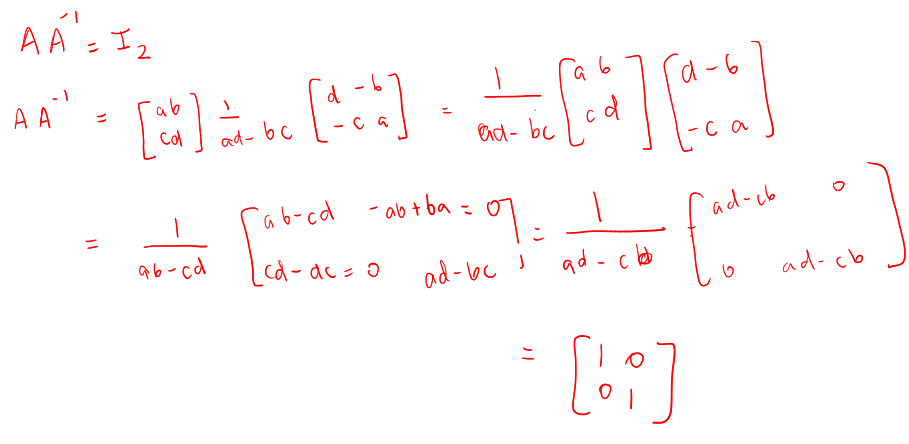 A A⁻¹ = I₂
A A⁻¹ = [a b; c d] 1/(ad - bc) [d -b; -c a] = 1/(ad - bc) [a b; c d] [d -b; -c a]
= 1/(ab - cd) [ab - cd -ab + ba = 0; cd - dc = 0 ad - bc] = 1/(ad - cb) [ad - cb 0; 0 ad - cb]
= [1 0; 0 1]